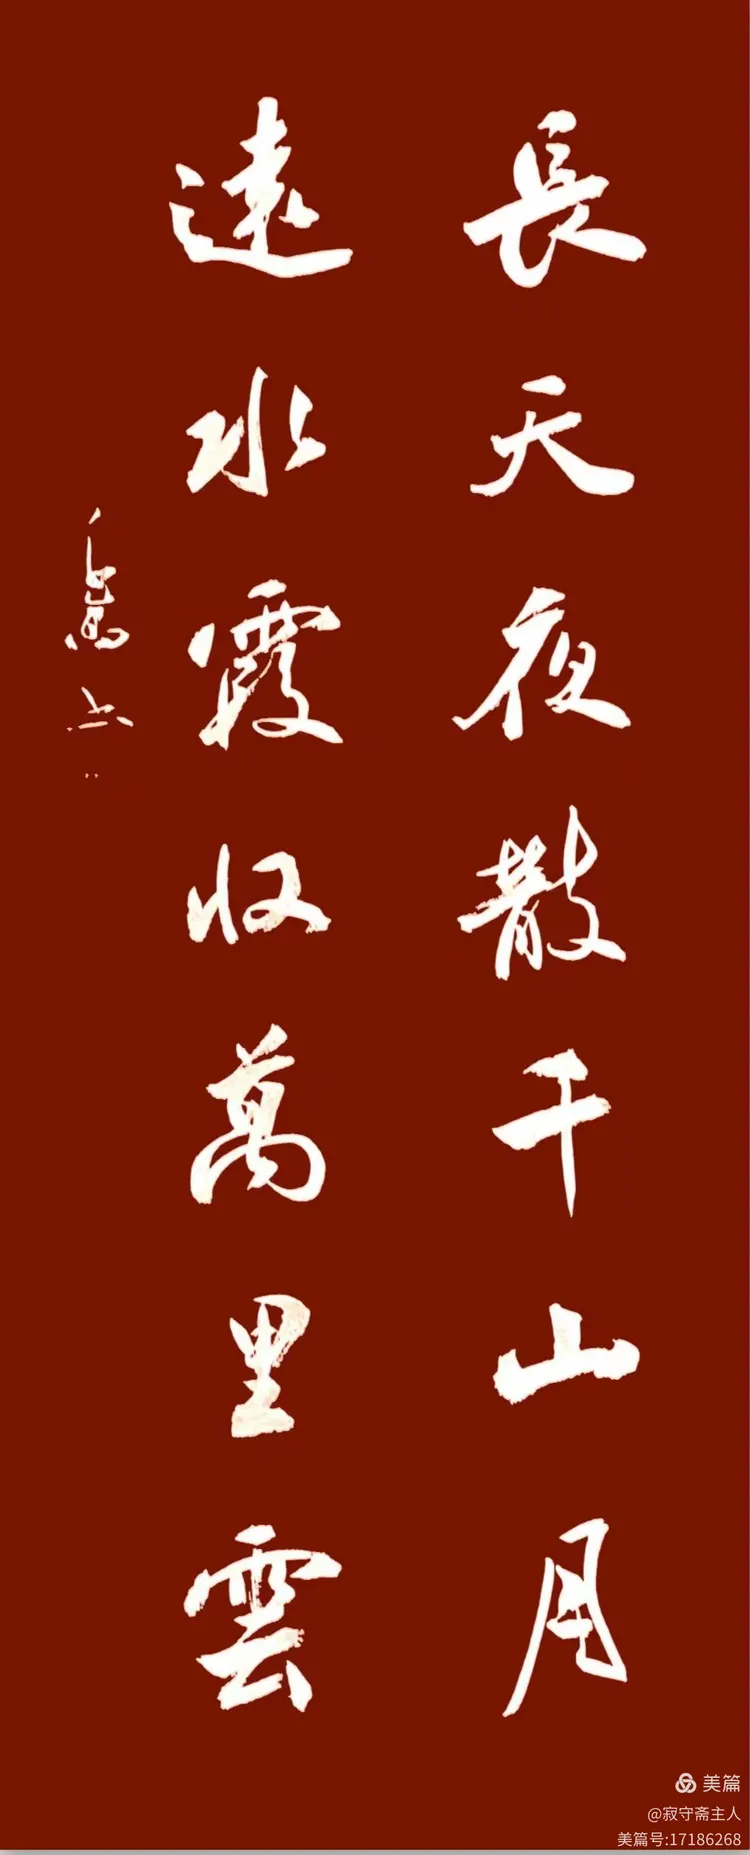 長天夜散千山月
遠水霞収萬里雲
美篇
@寂守斋主人
美篇号:17186268